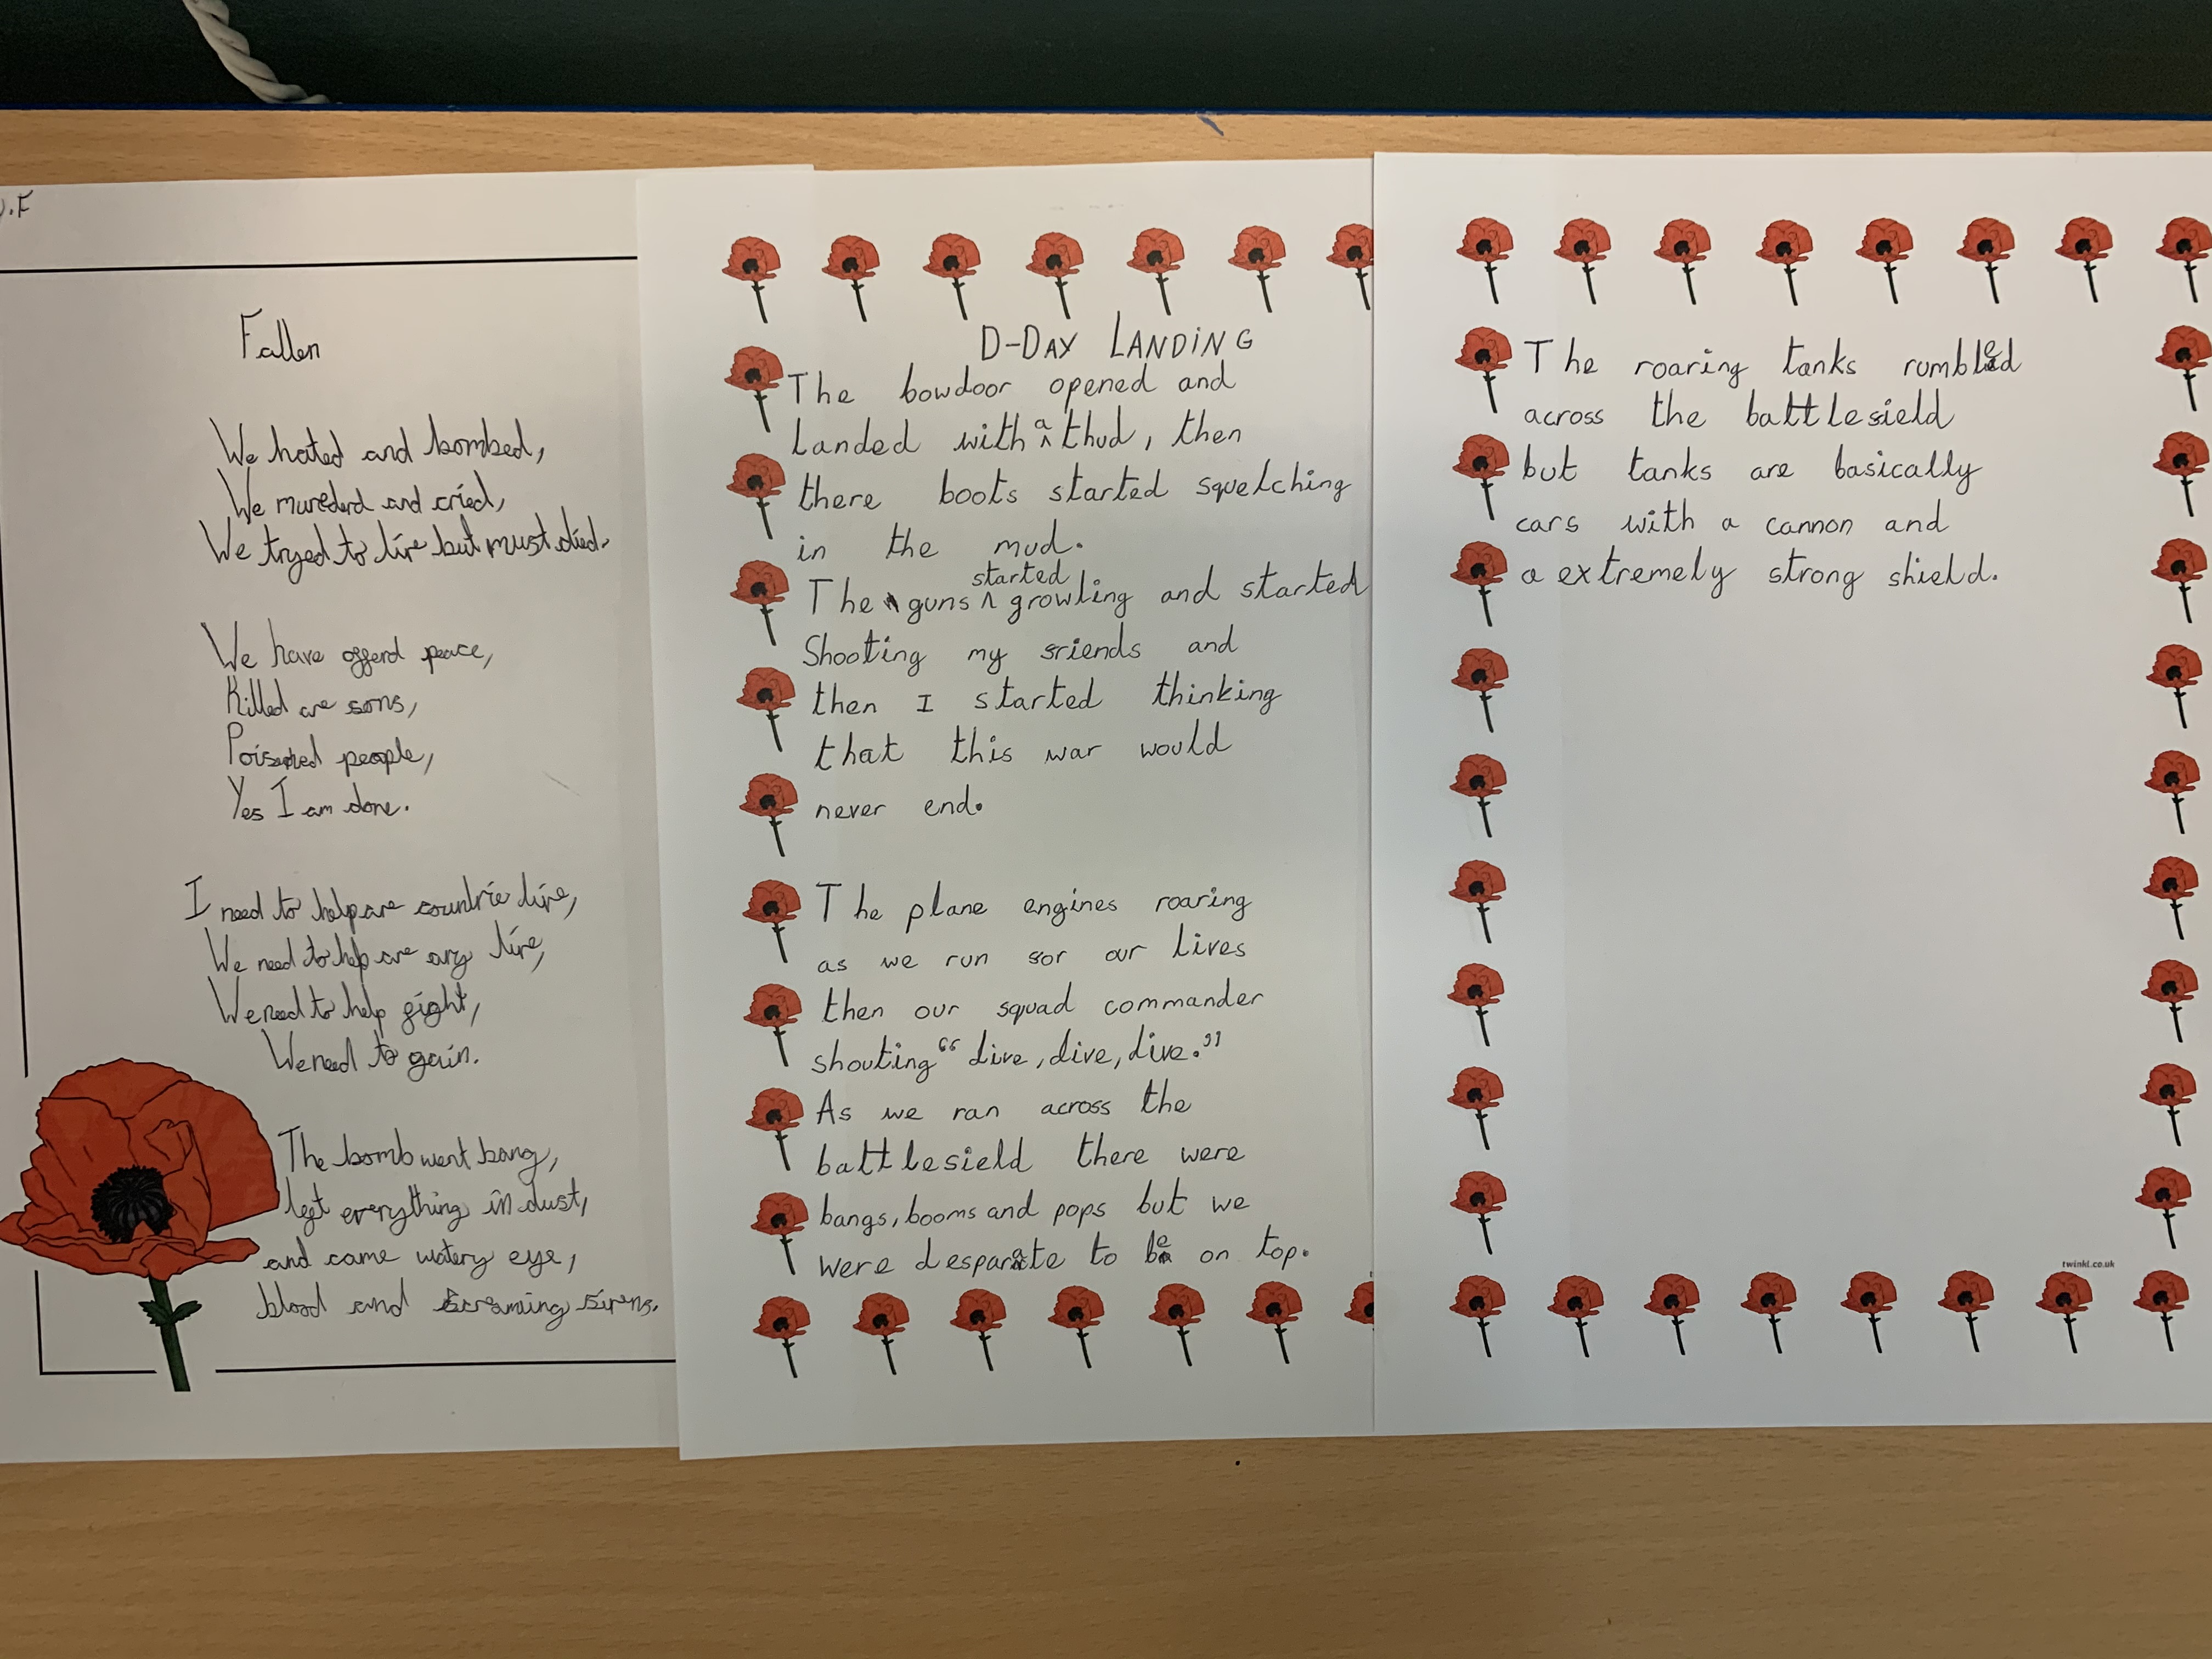 .F
Fallen
We hated and bombed,
We murederd and cried,
We tryed to live but must died.
We have offerd peace,
Killed are sons,
Poisened people,
Yes I am done.
I need to help are countrie live,
We need to help are army live,
We need to help fight,
We need to gain.
The bomb went bang,
left everything in dust,
and came watery eye,
blood and screaming sirens.
D-DAY LANDING
The bowdoor opened and
landed with a thud, then
there boots started squelching
in the mud.
The guns started growling and started
Shooting my friends and
then I started thinking
that this war would
never end.
The plane engines roaring
as we run for our lives
then our squad commander
shouting “dive, dive, dive.”
As we ran across the
battlefield there were
bangs, booms and pops but we
were desparate to be on top.
The roaring tanks rumbled
across the battlefield
but tanks are basically
cars with a cannon and
a extremely strong shield.
twinkl.co.uk